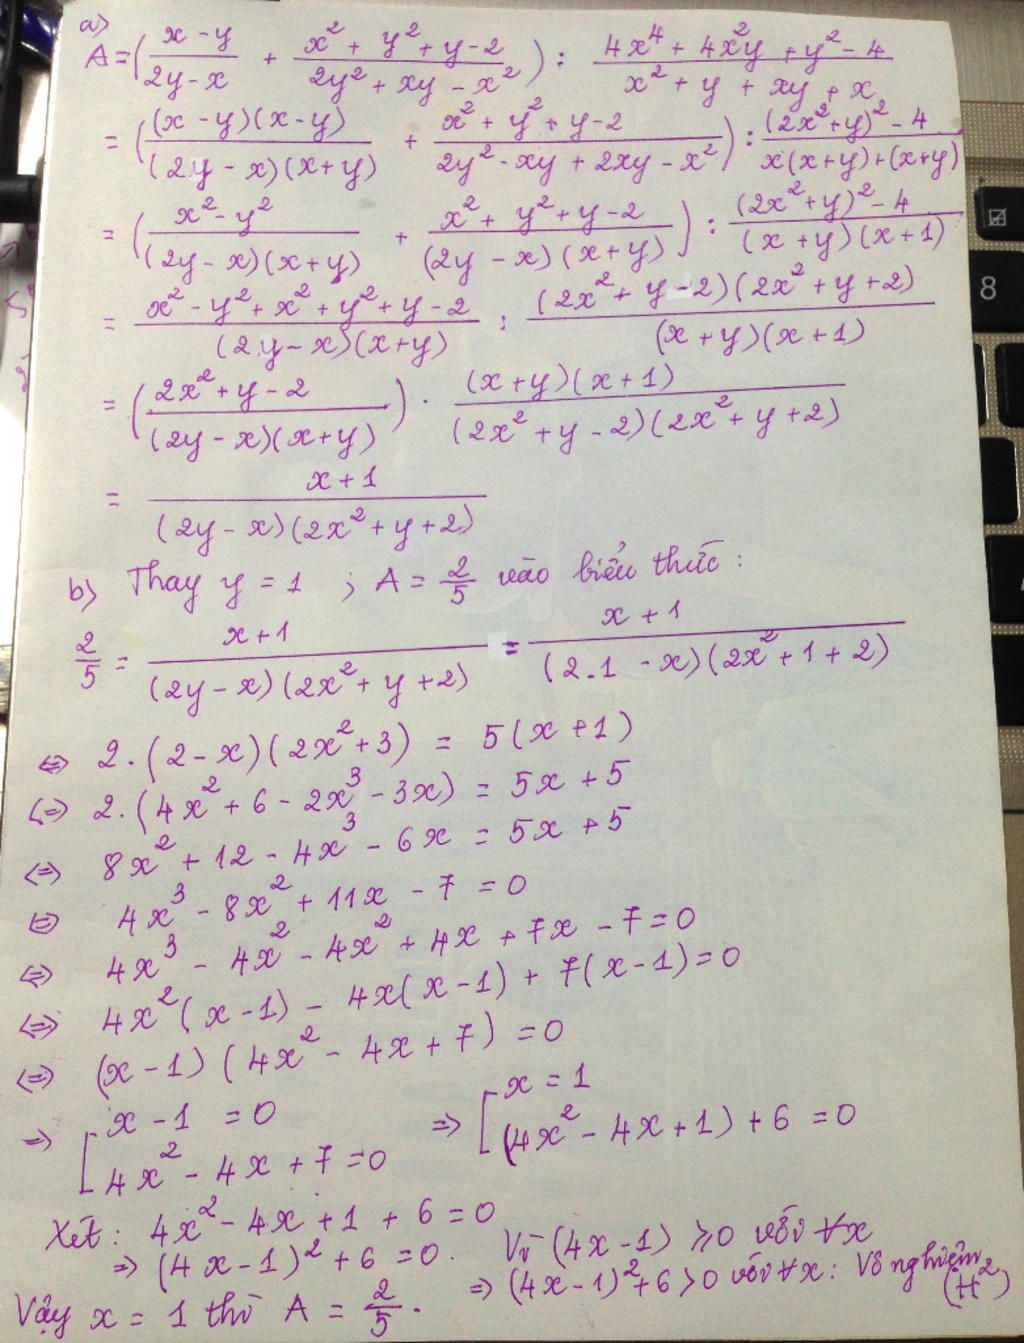 a)
A = ( (x - y)/(2y - x) + (x² + y² + y - 2)/(2y² + xy - x²) ) : (4x⁴ + 4x²y + y² - 4)/(x² + y + xy + x)
= ( (x - y)(x - y)/(2y - x)(x + y) + (x² + y² + y - 2)/(2y² - xy + 2xy - x²) ) : ((2x² + y)² - 4)/(x(x + y) + (x + y))
= ( (x² - y²)/(2y - x)(x + y) + (x² + y² + y - 2)/(2y - x)(x + y) ) : ((2x² + y)² - 4)/(x + y)(x + 1)
= (x² - y² + x² + y² + y - 2)/(2y - x)(x + y) : (2x² + y - 2)(2x² + y + 2)/(x + y)(x + 1)
= ( (2x² + y - 2)/(2y - x)(x + y) ) . (x + y)(x + 1)/(2x² + y - 2)(2x² + y + 2)
= (x + 1)/(2y - x)(2x² + y + 2)
b) Thay y = 1 ; A = 2/5 vào biểu thức :
2/5 = (x + 1)/(2y - x)(2x² + y + 2) = (x + 1)/(2.1 - x)(2x² + 1 + 2)
<=> 2.(2 - x)(2x² + 3) = 5(x + 1)
<=> 2.(4x² + 6 - 2x³ - 3x) = 5x + 5
<=> 8x² + 12 - 4x³ - 6x = 5x + 5
<=> 4x³ - 8x² + 11x - 7 = 0
<=> 4x³ - 4x² - 4x² + 4x + 7x - 7 = 0
<=> 4x²(x - 1) - 4x(x - 1) + 7(x - 1) = 0
<=> (x - 1)(4x² - 4x + 7) = 0
=> [ x - 1 = 0 => [ x = 1
4x² - 4x + 7 = 0 (4x² - 4x + 1) + 6 = 0
Xét : 4x² - 4x + 1 + 6 = 0
=> (4x - 1)² + 6 = 0. Vì (4x - 1) ≥ 0 với ∀x
=> (4x - 1)² + 6 > 0 với ∀x : Vô nghiệm
Vậy x = 1 thì A = 2/5 .
8